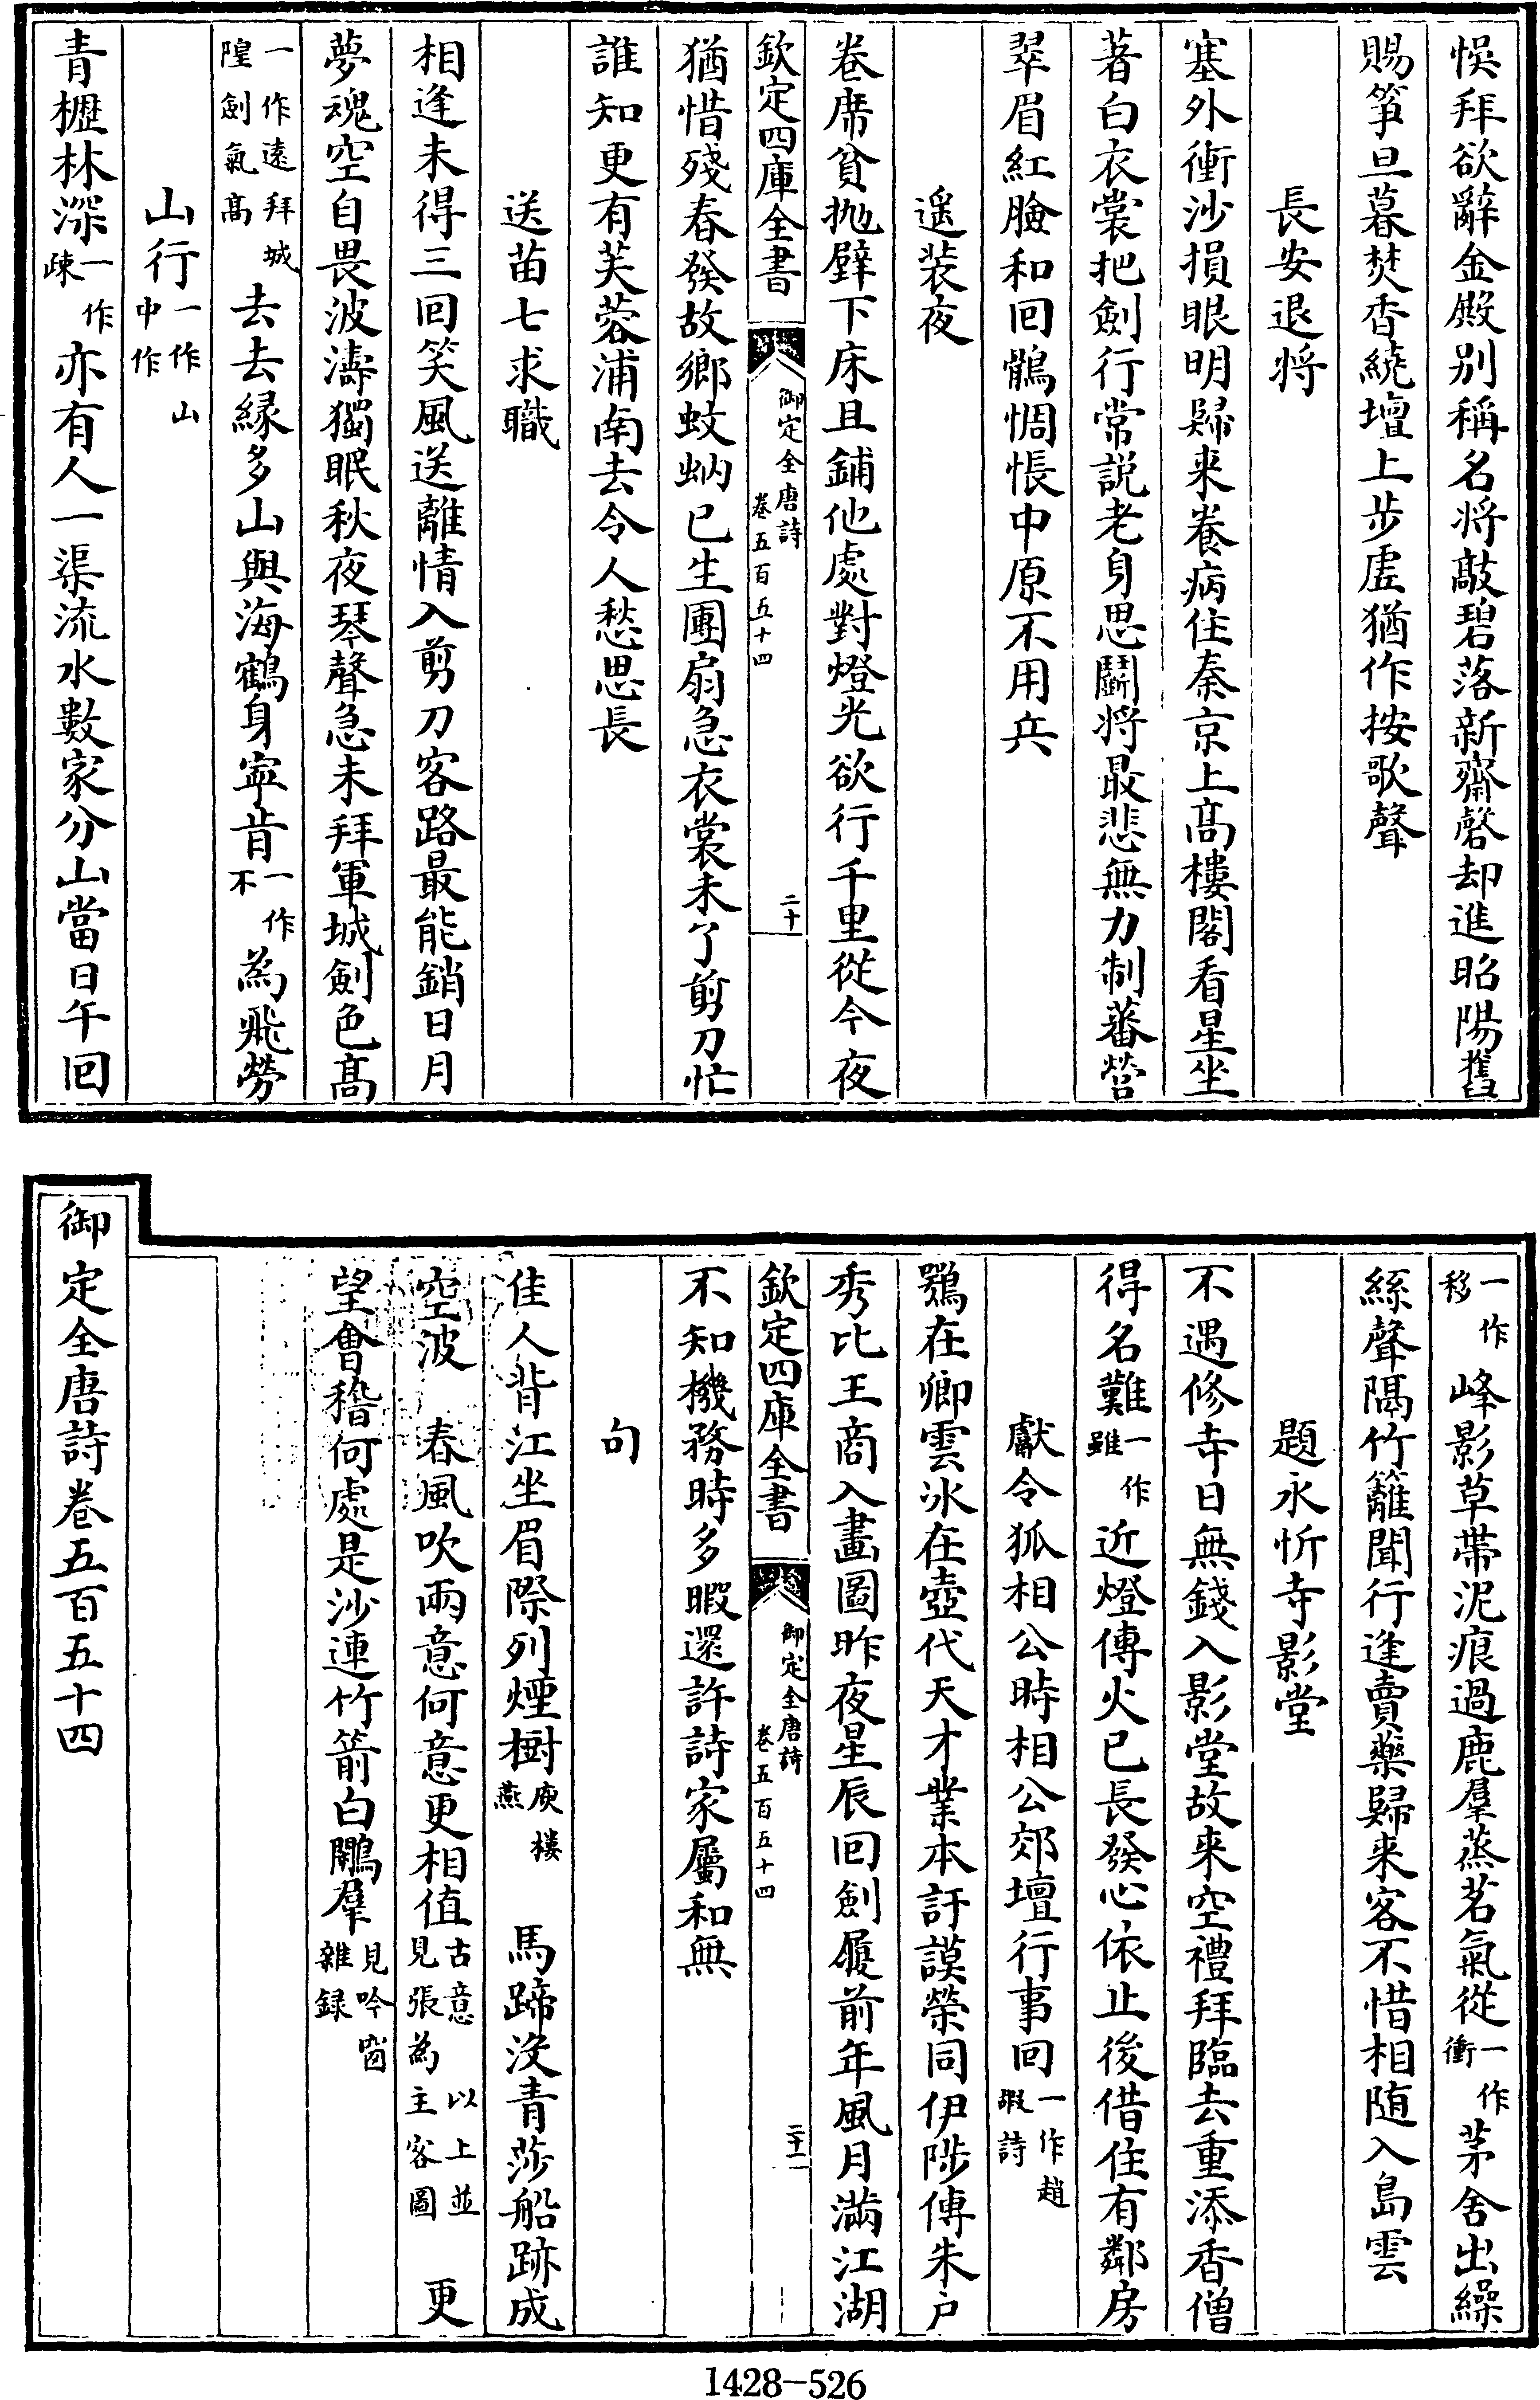 悞拜欲辭金殿别稱名將敲碧落新齋磬却進昭陽舊
賜筝旦暮焚香繞壇上步虚猶作按歌聲
長安退将
塞外衝沙損眼明歸来養病住秦京上髙樓閣看星坐
著白衣裳把劍行常説老身思鬭將最悲無力制蕃營
翠眉紅臉和回鶻惆悵中原不用兵
遥装夜
卷席貧抛壁下床且鋪他處對燈光欲行千里從今夜
欽定四庫全書
御定全唐詩
卷五百五十四
二十
猶惜殘春發故鄉蚊蚋已生團扇急衣裳未了剪刀忙
誰知更有芙蓉浦南去令人愁思長
送苗七求職
相逢未得三回笑風送離情入剪刀客路最能銷日月
夢魂空自畏波濤獨眠秋夜琴聲急未拜軍城劍色髙
一作遠拜城隍劍氣髙去去縁多山與海鶴身寧肯一作不為飛勞
山行一作山中作
青櫪林深一作疎亦有人一渠流水數家分山當日午回
一作移峰影草帶泥痕過鹿羣蒸茗氣從一作衝茅舍出繰
絲聲隔竹籬聞行逢賣藥歸来客不惜相随入島雲
題永忻寺影堂
不遇修寺日無錢入影堂故来空禮拜臨去重添香僧
得名難一作雖近燈傳火已長發心依止後借住有鄰房
獻令狐相公時相公郊壇行事回一作趙嘏詩
鶚在卿雲冰在壺代天才業本訏謨榮同伊陟傳朱户
秀比王商入畫圖昨夜星辰回劍履前年風月滿江湖
欽定四庫全書
御定全唐詩
卷五百五十四
二十一
不知機務時多暇還許詩家屬和無
句
佳人背江坐眉際列煙樹庾樓燕 馬蹄没青莎船跡成
空波 春風吹兩意何意更相值古意 以上並見張為主客圖 更
望會稽何處是沙連竹箭白鷴羣見吟窗雜録
御定全唐詩卷五百五十四
1428-526